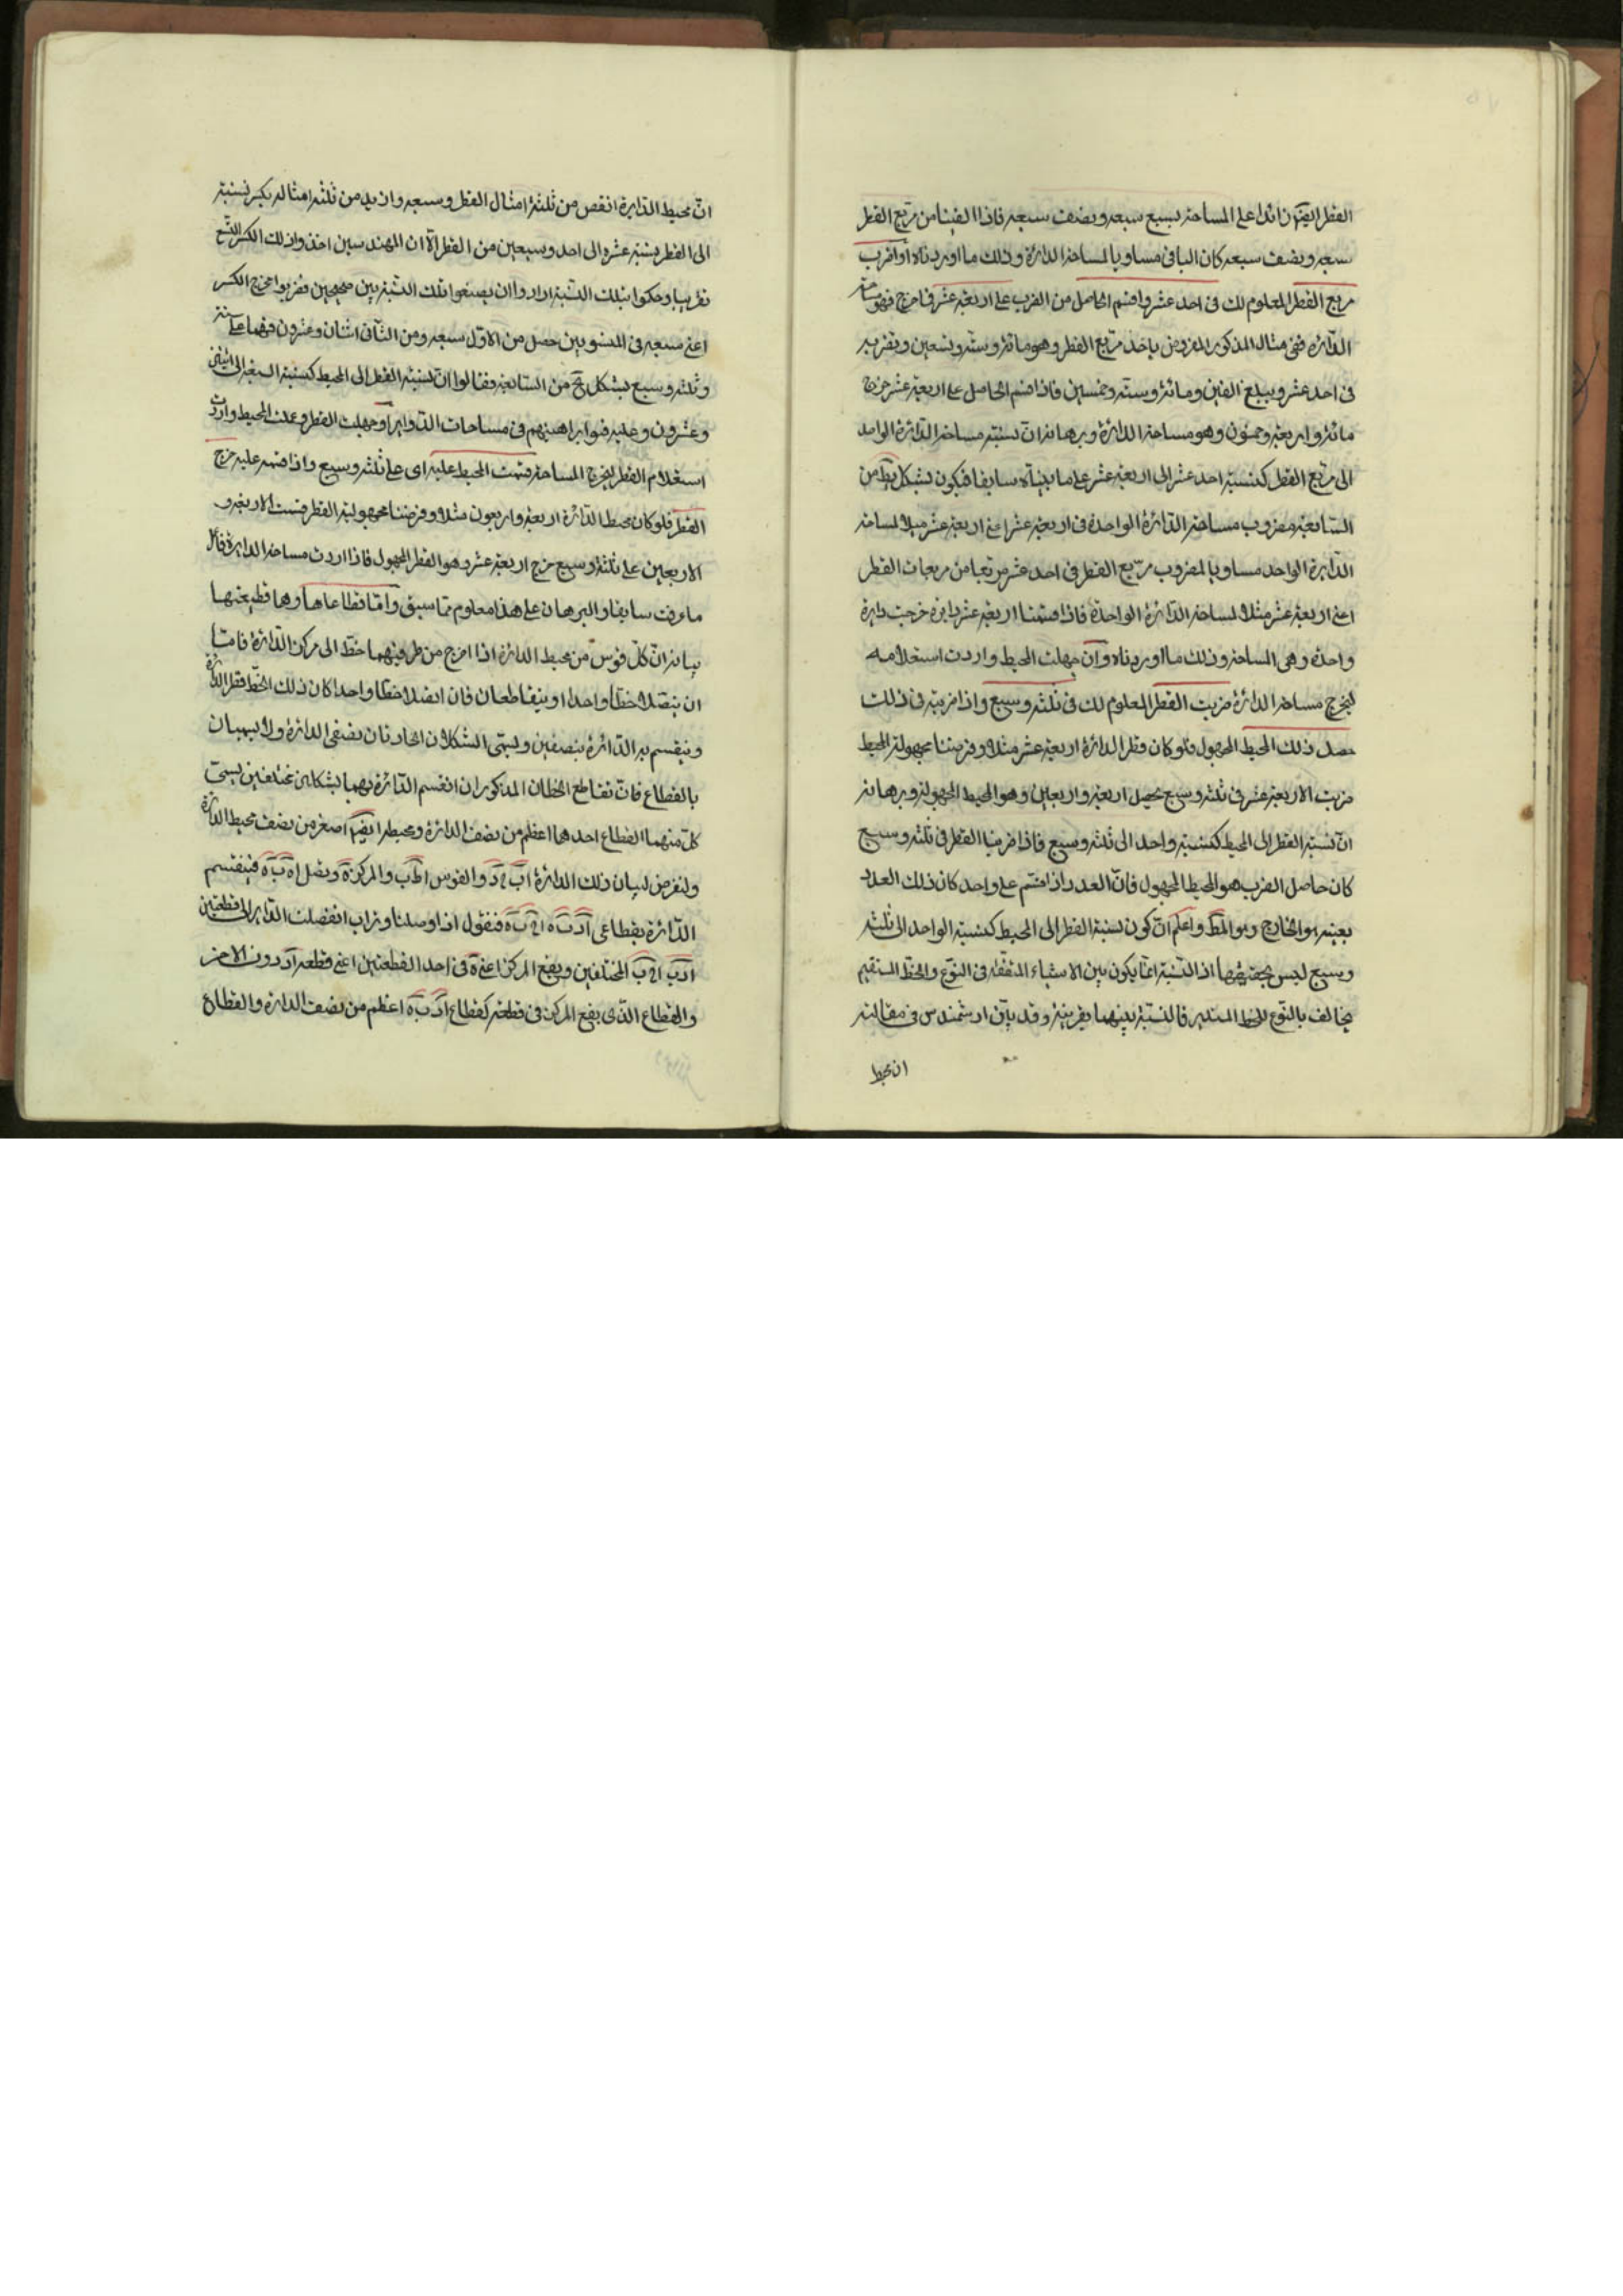 القطر ايضا زائدا على المساحة بسبع سبعه ونصف سبعه فاذا القينا من مربع القطر
سبعه ونصف سبعه كان الباقى مساويا لمساحة الدائرة وذلك ما اوردناه او اضرب
مربع القطر المعلوم لك فى احد عشر واقسم الحاصل من الضرب على اربعة عشر فما خرج فهو مساحة
الدائرة ففى مثال المذكور المفروض ياخذ مربع القطر وهو مائة وستة وتسعين ونضربه
فى احد عشر ويبلغ الفين ومائة وستة وخمسين فاذا قسم الحاصل على اربعة عشر خرج
مائة واربعة وخمسون وهو مساحة الدائرة وبرهانه ان نسبة مساحة الدائرة الواحد
الى مربع القطر كنسبة احد عشر الى اربعة عشر على ما بيناه سابقا فيكون بشكل يط من
السابعة مضروب مساحة الدائرة الواحدة فى اربعة عشر اعنى اربعة عشر مثلا لمساحة
الدايرة الواحد مساويا لمضروب مربع القطر فى احد عشر مربعا من مربعات القطر
اعنى اربعة عشر مثلا لمساحة الدائرة الواحدة فاذا قسمنا اربعة عشر دايرة خرجت دايرة
واحدة وهى المساحة وذلك ما اوردناه وان جهلت المحيط واردت استعلامه
ليخرج مساحة الدائرة ضربت القطر المعلوم لك فى ثلثه وسبع واذا ضربته فى ذلك
حصل ذلك المحيط المجهول فلو كان قطر الدائرة اربعة عشر مثلا وفرضنا مجهولية المحيط
ضربت الاربعة عشر فى ثلثه وسبع حصل اربعة واربعين وهو المحيط المجهولة وبرهانه
ان نسبة القطر الى المحيط كنسبة واحد الى ثلثه وسبع فاذا ضربنا القطر فى ثلثه وسبع
كان حاصل الضرب هو المحيط المجهول فان العدد اذا قسم على واحد كان ذلك العدد
بعينه هو الخارج وهو المط واعلم ان كون نسبة القطر الى المحيط كنسبة الواحد الى ثلثه
وسبع ليس بحقيقتها اذ النسبة انما يكون بين الاشياء المتفقة فى النوع والخط المستقيم
يخالف بالنوع للخط المستدير فالنسبة بينهما تقريبية وقد بين ارشمندس فى مقالته
ان محيط
ان محيط الدايرة انقص من ثلثة امثال القطر وسبعه وازيد من ثلثه امثاله بكسر نسبته
الى القطر نسبة عشره الى احد وسبعين من القطر الا ان المهندسين اخذوا ذلك الكسر السبع
تقريبا وحكموا بتلك النسبة ارادوا ان يضعوا تلك النسبة بين صحيحين فضربوا مخرج الكسر
اعنى سبعه فى المنسوبين حصل من الاول سبعه ومن الثانى اثنان وعشرون فهما على نسبة
وثلثه وسبع بشكل يح من السابعة فقالوا ان نسبة القطر الى المحيط كنسبة السبعة الى اثنين
وعشرون وعليه بنوا براهينهم فى مساحات الدواير او جهلت القطر وعلمت المحيط واردت
استعلام القطر ليخرج المساحة قسمت المحيط عليه اى على ثلثه وسبع واذا قسمه عليه خرج
القطر فلو كان محيط الدائرة اربعة واربعون مثلا وفرضنا مجهولية القطر قسمت الاربعة و
الاربعين على ثلثة وسبع خرج اربعة عشر وهو القطر المجهول فاذا اردت مساحة الدايرة فافعل
ما عرفت سابقا والبرهان على هذا معلوم مما سبق واما قطاعاها وهما قطيعتها
بيانه ان كل قوس من محيط الدائرة اذا اخرج من طرفيهما خط الى مركز الدائرة فاما
ان يتصلا خطا واحدا او يتقاطعان فان اتصلا خطا واحدا كان ذلك الخط قطر الدائرة
وينقسم به الدائرة بنصفين ويسمى الشكلان الحادثان نصفى الدائرة ولا يسميان
بالقطاع فان تقاطع الخطان المذكوران انقسم الدائرة بهما بشكلين مختلفين يسمى
كل منهما القطاع احدهما اعظم من نصف الدائرة ومحيطه ايضا اصغر من نصف محيط الدائرة
ولنفرض لبيان ذلك الدائرة والقوس والمركز ونصل فينقسم
الدائرة بقطاعى فنقول اذا وصلنا وتر اب انفصلت الدايرة الى قطعتين
المختلفين ويقع المركز اعنى ه فى احد القطعتين اعنى قطعه ادب دون الاخر
والقطاع الذى يقع المركز فى قطعته كقطاع ادب ه اعظم من نصف الدائرة والقطاع